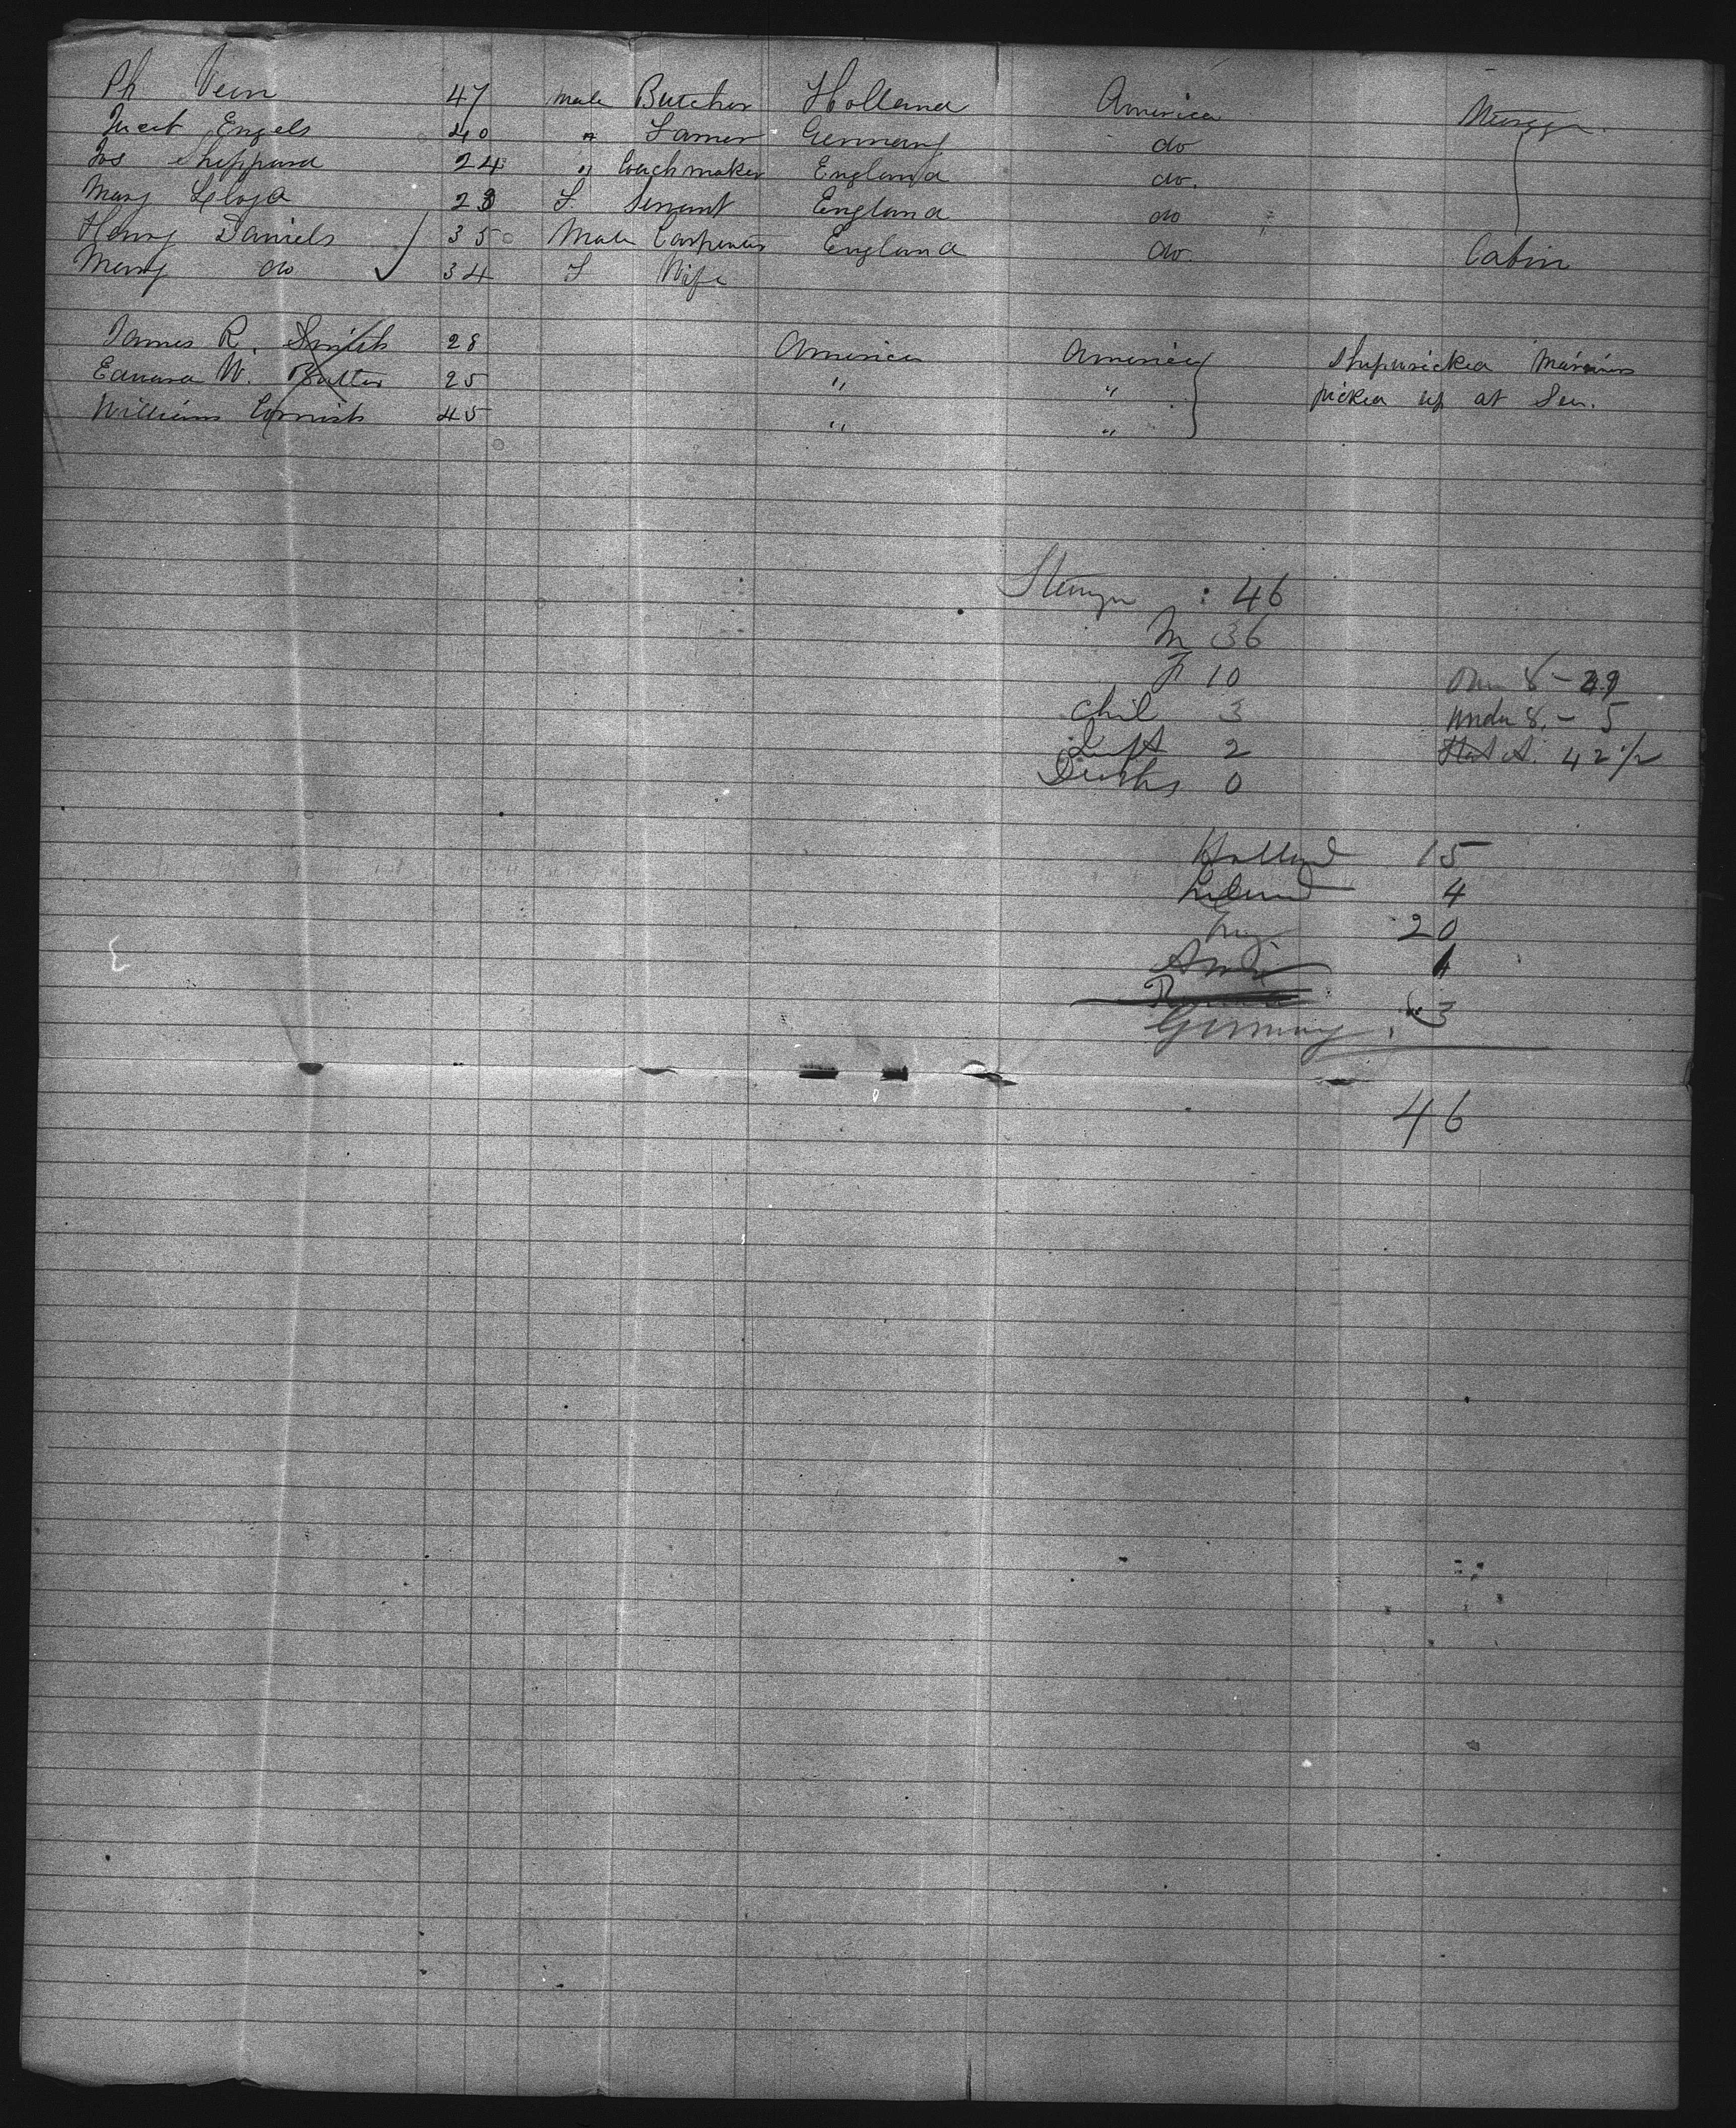 Ph Vein 47 Male Butcher Holland America
Engels 40 " Farmer Germany do
Jos Sheppard 24 " Coachmaker England do.
Mary Lloyd 23 F. Servant England do
Henry Daniels 35 Male Carpenter England do. Cabin
Mary do 34 F Wife
James R. Smith 28 America America Shipwricked Mariners
Edward W. Butler 25 " " picked up at Sea.
William Cornish 45 " "
: 46
M 36
F 10
Chil 3 Under 8. - 5
2 42 1/2
Deaths 0
Holland 15
Ireland 4
Eng 20
Germany 3
46